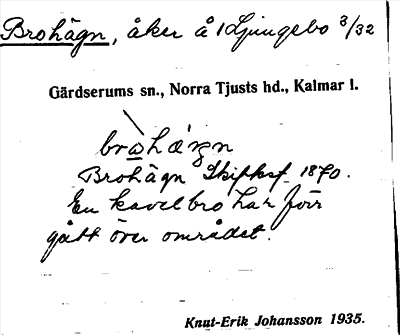 Brohägn, åker å Ljungebo 3/32
Gärdserums sn., Norra Tjusts hd., Kalmar l.
Brohägn Skifksf. 1870.
En kavelbro har förr
gått över området.
Knut-Erik Johansson 1935.